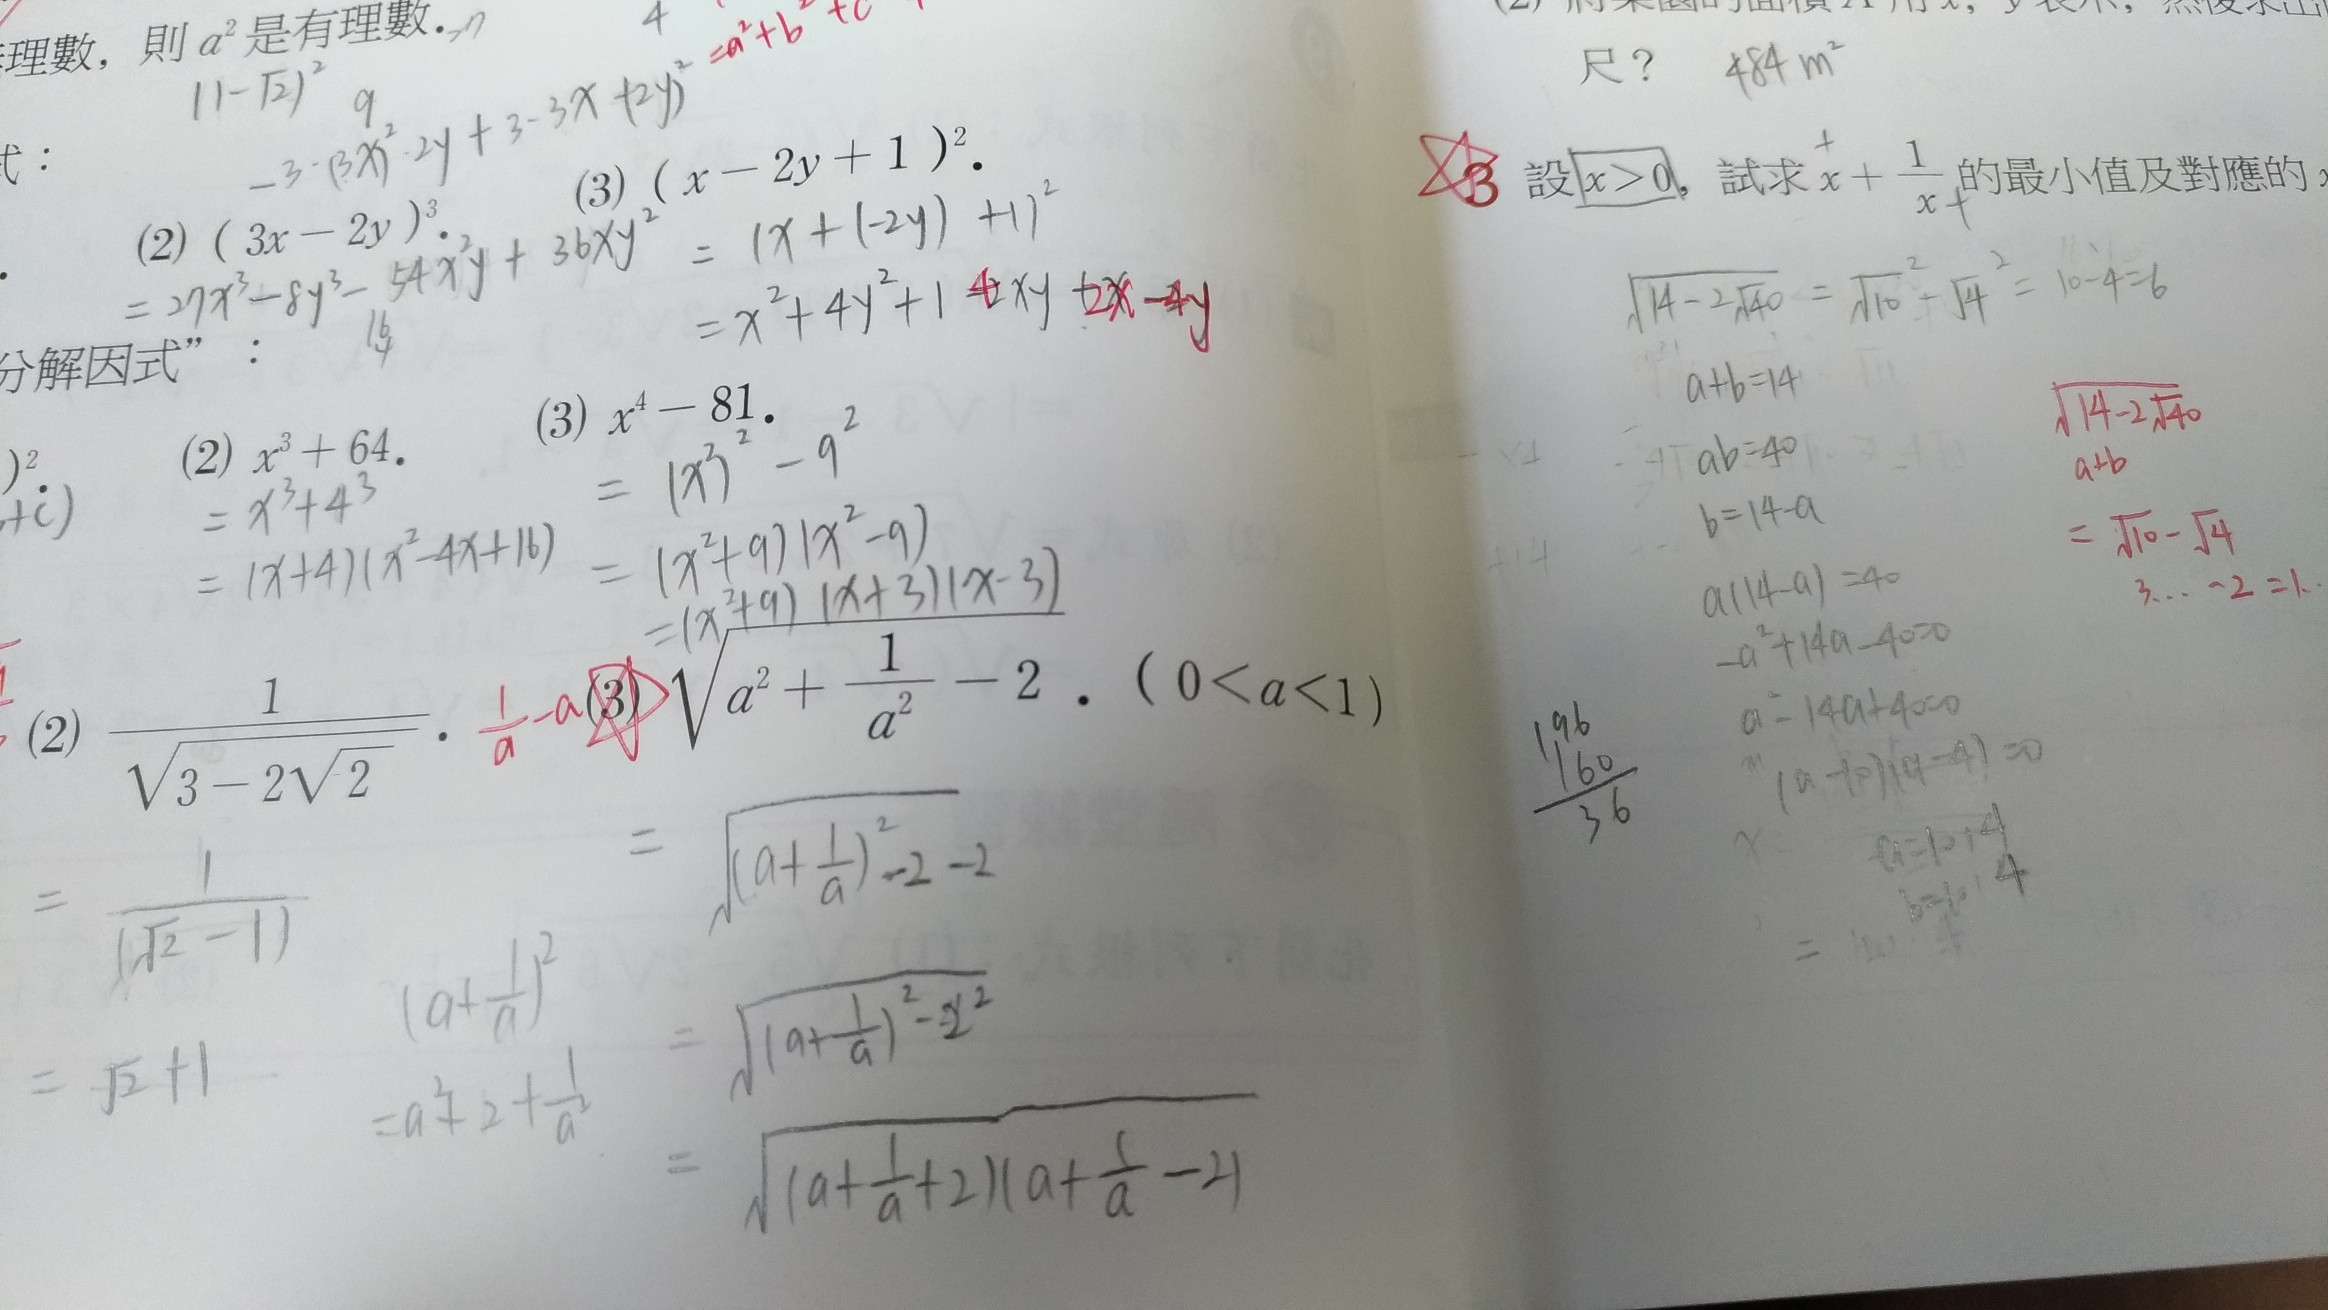 理數，則 a² 是有理數．
(1-√2)²
9
4
=a²+b²+c
-3·(3x)²·2y+3·3x·(2y)²
式：
(2) (3x－2y)³．
=27x³-8y³-54x²y+36xy²
16
4
(3) (x－2y＋1)²．
=(x+(-2y)+1)²
=x²+4y²+1-4xy+2x-4y
分解因式”：
)²．
+c)
(2) x³＋64．
=x³+4³
=(x+4)(x²-4x+16)
(3) x⁴－81．
=(x²)²-9²
=(x²+9)(x²-9)
=(x²+9)(x+3)(x-3)
(2) 1/√(3－2√2)．
=1/(√2-1)
=√2+1
1/a-a
(3) √(a²＋1/a²－2)．(0<a<1)
=√((a+1/a)²-2-2)
=√((a+1/a)²-2²)
=√((a+1/a+2)(a+1/a-2))
(a+1/a)²
=a²+2+1/a²
(2) 將菜園的面積 A 用 x，y 表示，然後求出
尺？ 484 m²
3 設 x>0，試求 x＋1/x 的最小值及對應的 x
+
+
√(14-2√40)=√10²-√4²=10-4=6
a+b=14
ab=40
b=14-a
a(14-a)=40
-a²+14a-40=0
a²-14a+40=0
(a-10)(a-4)=0
a=10,4
b=10,4
196
160
36
√(14-2√40)
a+b
=√10-√4
3...-2=1..